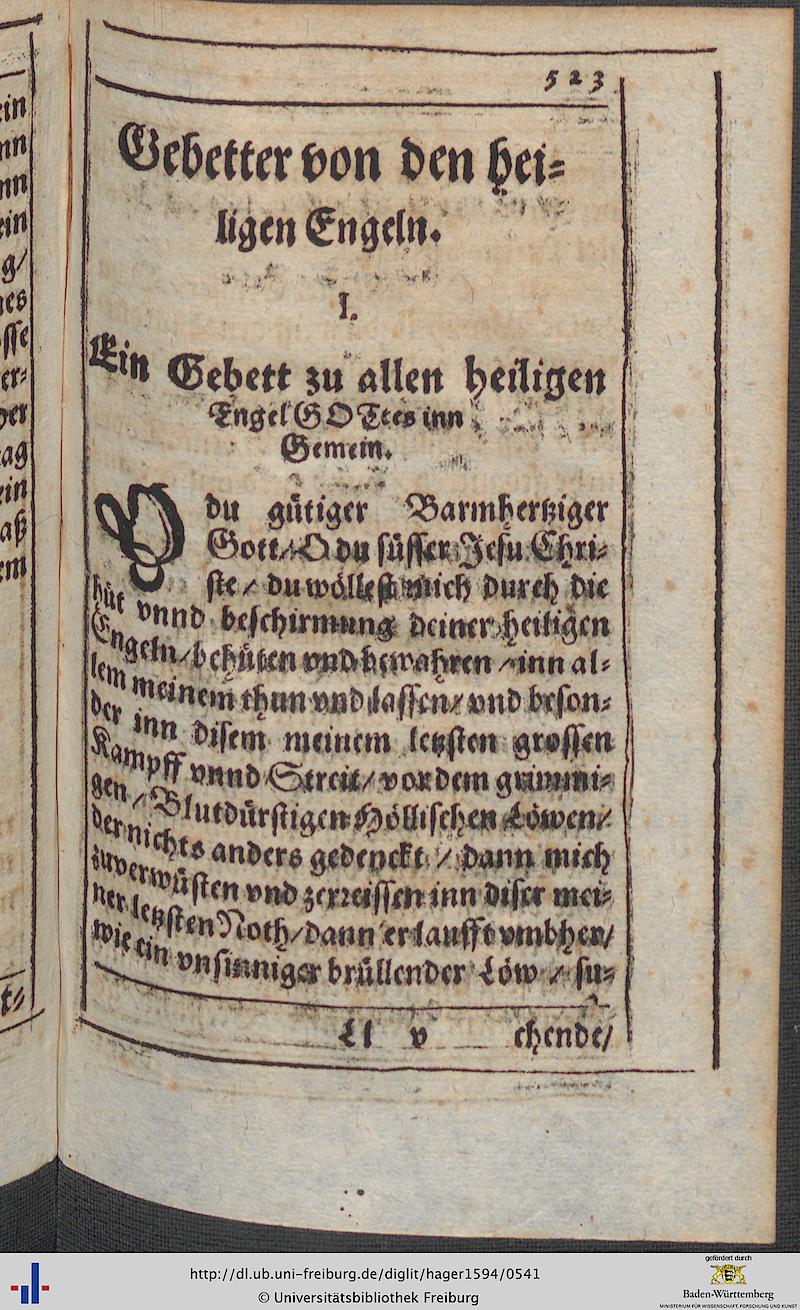 523
Gebetter von den hei=
ligen Engeln.
I.
Ein Gebett zu allen heiligen
Engel GOTtes inn
Gemein.
O du gütiger Barmhertziger
Gott / O du süsser Jesu Chri=
ste / du wöllest mich durch die
hüt vnnd beschirmung deiner heiligen
Engeln / behüten vnd bewahren / inn al=
lem meinem thun vnd lassen / vnd beson=
der inn disem meinem letzsten grossen
Kampff vnnd Streit / vor dem grimmi=
gen / Blutdürstigen Höllischen Löwen /
der nichts anders gedenckt / dann mich
zuverwüsten vnd zerreissen inn diser mei=
ner letzsten Noth / dann er laufft vmbher /
wie ein vnsinniger brüllender Löw / su=
Ll v chende /
ein
nn
nn
ein
g/
nes
osse
er=
her
ag
ein
aß
em
t=
http://dl.ub.uni-freiburg.de/diglit/hager1594/0541
© Universitätsbibliothek Freiburg
gefördert durch
Baden-Württemberg
MINISTERIUM FÜR WISSENSCHAFT, FORSCHUNG UND KUNST